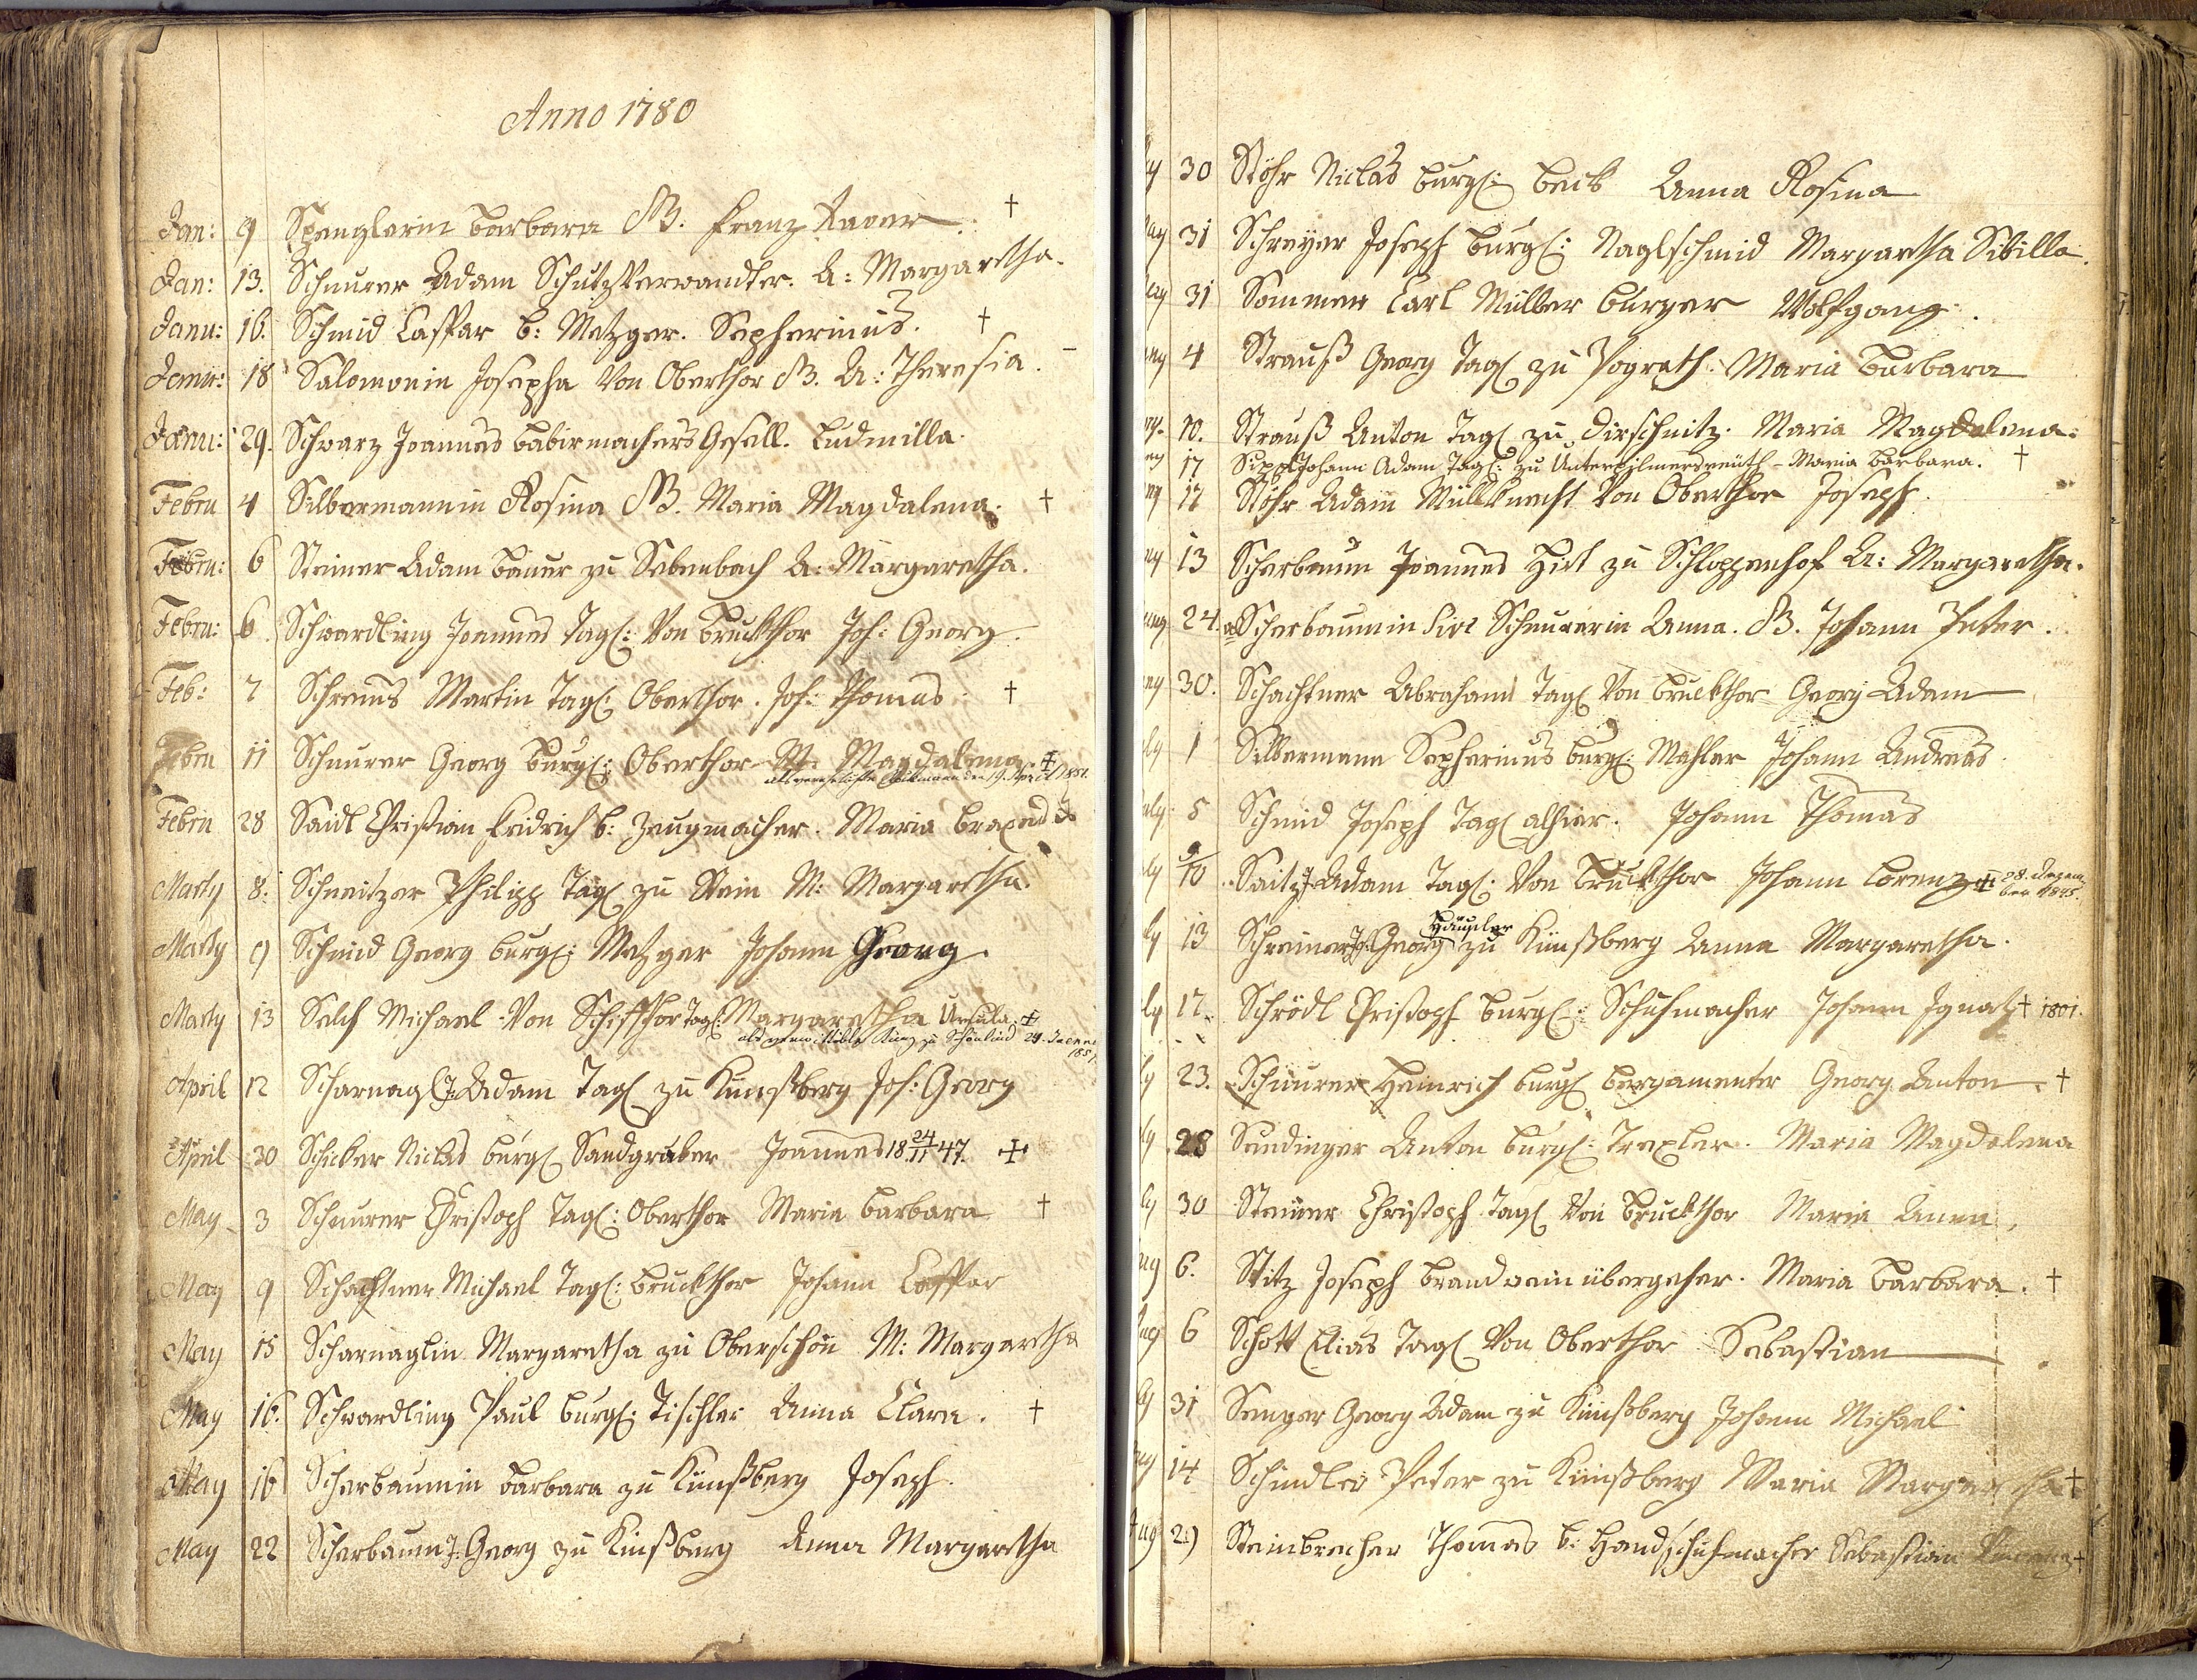 Anno 1780
Jan: 9 Spenglerin Barbara SB. Franz Xaver †
Jan: 13. Scheurer Adam Schutz Verwandter. A: Margaretha.
Janu: 16. Schmid Caspar b: Metzger. Sepherinus. †
Janu: 18 Salomonin Josepha Von Oberthor SB. A: Theresia.
Janu: 29. Schwarz Joannes Babirmachers Gesell. Ludmilla.
Febru 4 Silbermannin Rosina SB. Maria Magdalena. †
Febru: 6 Steiner Adam Bauer zu Sebenbach A: Margaretha.
Febru: 6. Schwardling Joannes Tagl: Von Bruckthor Joh: Georg.
Feb: 7 Schrems Martin Tagl: Oberthor. Joh: Thomas †
Febru 11 Scheurer Georg Burgl: Oberthor M: Magdalena. †
als verehelichte den 19. April 1851.
Febru 28 Saidl Christian Fridrich b: Zeugmacher. Maria Braxedis
Marty 8. Schneitzer Philipp Tagl zu Stein M: Margaretha.
Marty 9 Schmid Georg burgl: Metzger Johann Georg.
Marty 13 Selch Michael Von Schiffthor Tagl: Margaretha Ursula. †
als zu Schönlind 24. 1851.
April 12 Scharnagl J: Adam Tagl zu Kunßberg Joh: Georg
April 30 Schicker Niclas burgl Sandgraber Joannes 18 24/11 47. †
May 3 Scheurer Christoph Tagl: Oberthor Maria Barbara †
May 9 Schachtner Michael Tagl: Bruckthor Johann Caspar
May 15 Scharnaglin Margaretha zu Oberschön M: Margaretha
May 16. Schwardling Paul burgl: Tischler Anna Clara. †
May 16 Scherbaumin Barbara zu Künßberg Joseph.
May 22 Scherbaum J: Georg zu Kinßberg Anna Margaretha
y 30 Stöhr Niclas burgl: Beck Anna Rosina
ay 31 Schreyer Joseph Burgl: Naglschmid Margaretha Sibilla.
ay 31 Sommer Carl Müller burger Wolfgang.
ny 4 Strauß Georg Tagl zu Pograth. Maria Barbara
ny. 10. Strauß Anton Tagl zu Dirschnitz. Maria Magdalena.
ny 17 Johann Adam Tagl: zu Unterpilmersreuth - Maria Barbara. †
ny 17 Stöhr Adam Müllknecht Von Oberthor Joseph.
ny 13 Scherbaum Joannes Hirt zu Schloppenhof A: Margaretha.
ny 24. Scherbaumin sive Scheurerin Anna. SB. Johann Peter.
ny 30. Schachtner Abraham Tagl Von Bruckthor Georg Adam
ly 1 Silbermann Sepherinus burgl: Mahler Johann Andreas.
uly 5 Schmid Joseph Tagl alhier. Johann Thomas
ly 10 Saitz J: Adam Tagl: Von Bruckthor Johann Lorenz † 28. Dezember 1845.
Häusler
ly 13 Schreiner J: Georg zu Künßberg Anna Margaretha.
ly 17. Schrödl Christoph burgl: Schuhmacher Johann Ignatz † 1801.
ly 23. Scheurer Heinrich burgl bergamenter Georg Anton. †
ly 28 Sendinger Anton burgl: Trexler. Maria Magdalena
ly 30 Steiner Christoph Tagl Von Bruckthor Maria Anna,
ug 6. Stitz Joseph brandwein übergeher. Maria Barbara. †
ug 6 Schott Elias Tagl Von Oberthor Sebastian
ly 31 Senger Georg Adam zu Künßberg Johann Michael
ug 14 Schindler Peter zu Künßberg Maria Margaretha †
Aug 29 Steinbrecher Thomas b: Handschuhmacher Sebastian †